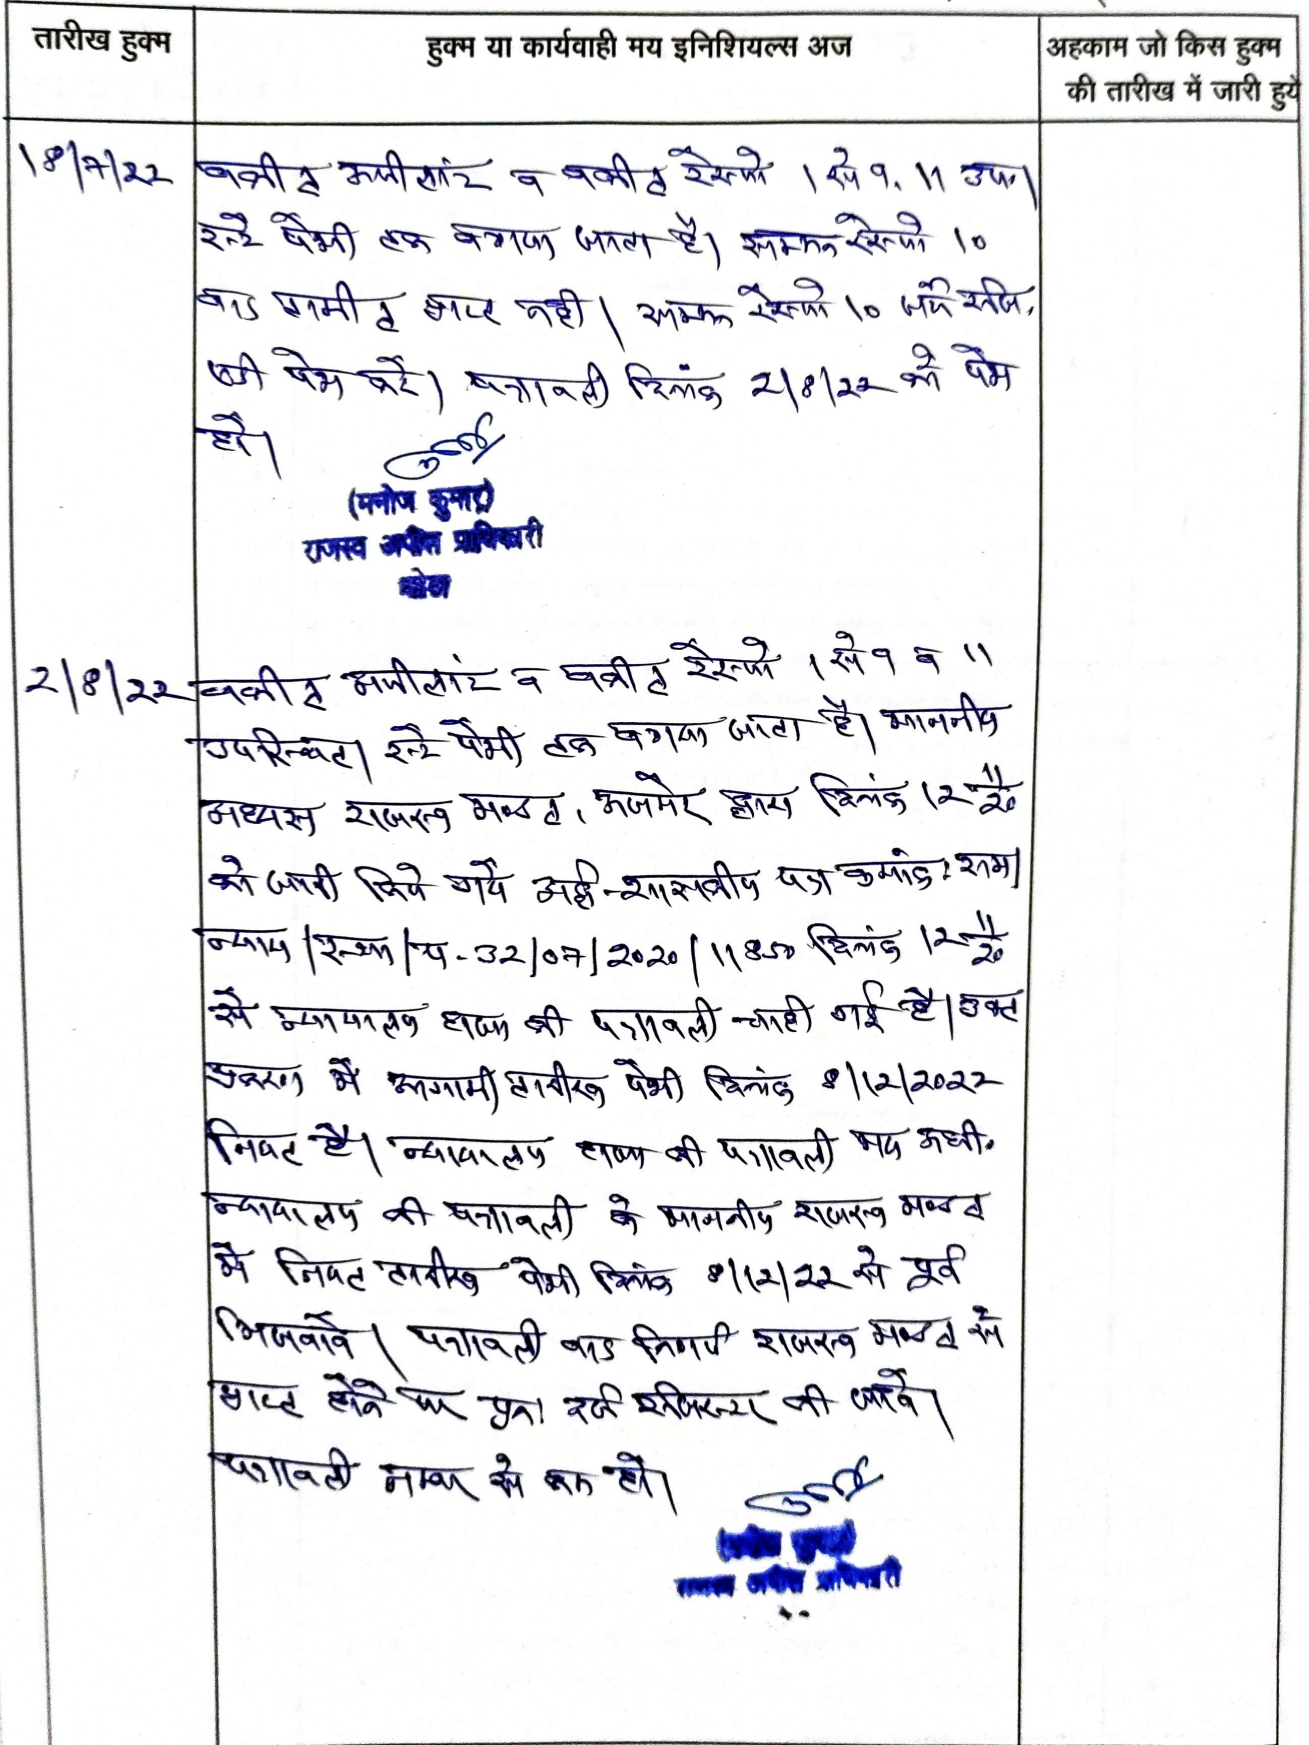 तारीख हुक्म
हुक्म या कार्यवाही मय इनिशियल्स अज
अहकाम जो किस हुक्म
की तारीख में जारी हुये
18/7/22
वकील अपीलांट व वकील रेस्पो 1 से 9, 11 उप।
इन्हें पेशी तक बताया जाता है। सम्मन रेस्पो 10
बाद तामील प्राप्त नहीं। सम्मन रेस्पो 10 जर्ये रजि.
ए.डी पेश करें। पत्रावली दिनांक 2/8/22 को पेश
हो।
(मनोज कुमार)
राजस्व अपील प्राधिकारी
कोटा
2/8/22
वकील अपीलांट व वकील रेस्पो 1 से 9 व 11
उपस्थित। इन्हें पेशी तक बताया जाता है। माननीय
अध्यक्ष राजस्व मण्डल, अजमेर द्वारा दिनांक 12-11-20
को जारी किये गये अर्द्ध-शासकीय पत्र क्रमांक: राम।
न्याय/ /प-32/07/2020/11850 दिनांक 12-11-20
से न्यायालय हाजा की पत्रावली चाही गई है। उक्त
प्रकरण में आगामी तारीख पेशी दिनांक 8/12/2022
नियत है। न्यायालय हाजा की पत्रावली मय अधी.
न्यायालय की पत्रावली के माननीय राजस्व मण्डल
में नियत तारीख पेशी दिनांक 8/12/22 से पूर्व
भिजवावें। पत्रावली बाद निर्णय राजस्व मण्डल से
प्राप्त होने पर पुनः दर्ज रजिस्टर की जावे।
पत्रावली नम्बर से कम हो।
(मनोज कुमार)
राजस्व अपील प्राधिकारी